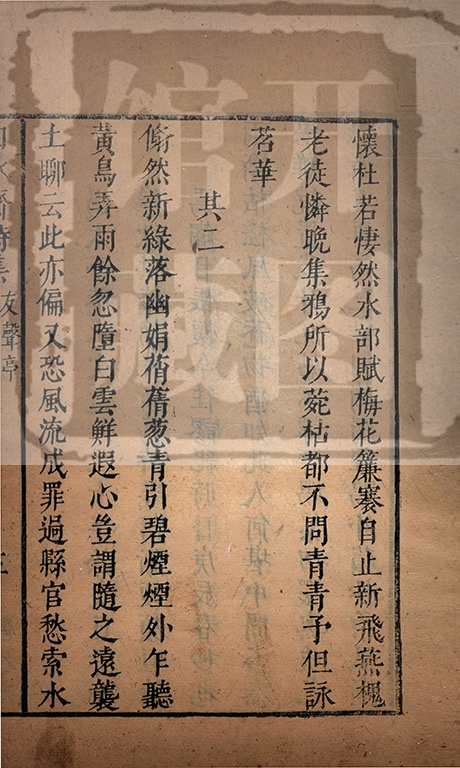 懷杜若悽然水部賦梅花簾褰自止新飛燕槐
老徒憐晚集鴉所以菀枯都不問青青予但詠
苕華
其二
翛然新綠落幽娟蒨蒨葱青引碧煙煙外乍聽
黃鳥弄雨餘忽墮白雲鮮遐心豈謂隨之遠襲
土聊云此亦偏又恐風流成罪過縣官愁索水
友聲亭
开图
馆藏